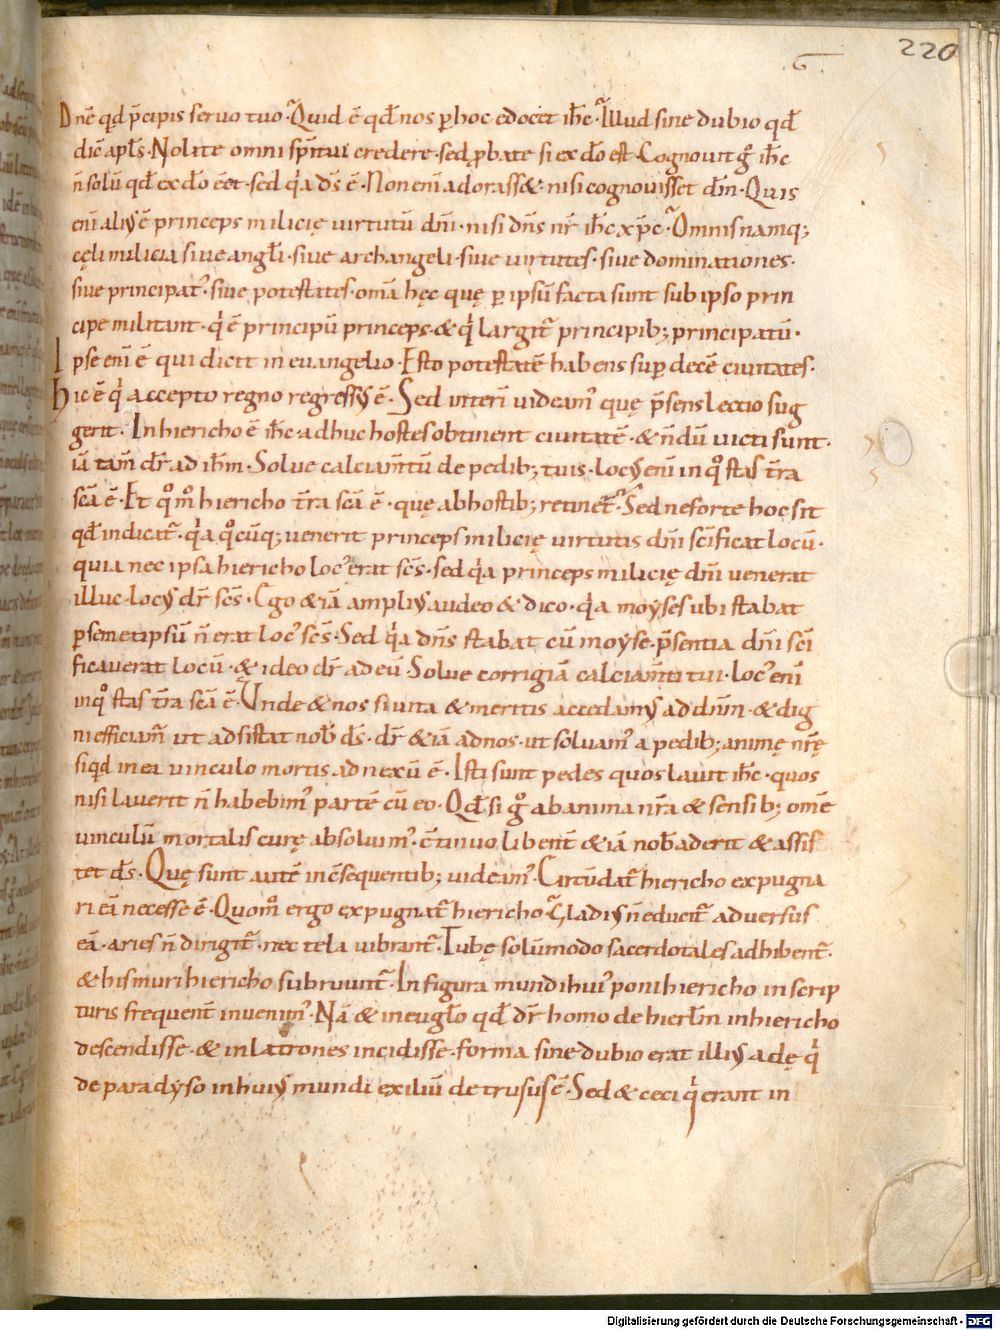 220
Dnē qđ p̄cipis servo tuo· Quid ē qđ nos p hoc edocet ih̄c· Illud sine dubio qđ
dic̄ apl̄s· Nolite omni spiritui credere· sed pbate si ex dō est· Cognovit g̊ ih̄c
n̄ solū qđ ex dō eēt· sed qa d̄s ē· Non enī adorass& nisi cognovisset dm̄· Quis
enī aliꝰ ē princeps milicię virtutū dn̄i· nisi dn̄s nr̄ ih̄c xp̄c· Omnis namq;
cęli milicia sive angl̄i· sive archangeli· sive virtutes· sive dominationes·
sive principatꝰ· sive potestates· om̄a hęc quę p ipsū facta sunt sub ipso prin
cipe militant· qi ē principū princeps· & qi largit̄ principib; principatū·
Ipse enī ē qui dicit in euangelio· Esto potestatē habens sup decē civitates·
hic ē qi accepto regno regressꝰ ē· Sed interī videamꝰ quę p̄sens lectio sug
gerit· In hiericho ē ih̄c· adhuc hostes obtinent civitatē· & n̄dū victi sunt·
iā tam̄ dr̄ ad ih̄m· Solve calciam̄tū de pedib; tuis· locꝰ enī in qo stas t̄ra
sc̄a ē· Et qom̊ hiericho t̄ra sc̄a ē· quę ab hostib; retinet̄· Sed ne forte hoc sit
qđ indicat̄· qa qocūq; venerit princeps milicię virtutis dn̄i sc̄ificat locū·
quia nec ipsa hiericho locꝰ erat sc̄s· sed qa princeps milicię dn̄i venerat
illuc· locꝰ dr̄ sc̄s· Ego & iā ampliꝰ audeo & dico· qa moyses ubi stabat
p semetipsū n̄ erat locꝰ sc̄s· Sed qa dn̄s stabat cū moyse· p̄sentia dn̄i sc̄i
ficaverat locū· & ideo dr̄ ad eū· Solve corrigiā calciam̄ti tui· locꝰ enī
in qo stas t̄ra sc̄a ē· Unde & nos si vita & meritis accedamꝰ ad dn̄m· & dig
ni efficiam̄ ut adsistat nob̄ d̄s· dr̄ & iā ad nos· ut solvamꝰ a pedib; animę nr̄ę
siqđ in ea vinculo mortis adnexū ē· Isti sunt pedes quos lavit ih̄c· quos
nisi laverit n̄ habebimꝰ partē cū eo· Qđ si g̊ ab anima nr̄a & sensib; omē
vinculū mortalis curę absolvimꝰ· c̄tinuo libent̄ & iā nob̄ aderit & assis
tet d̄s· Quę sunt autē in c̄sequentib; videamꝰ· Circūdat̄ hiericho expugna
ri eā necesse ē· Quom̊ ergo expugnat̄ hiericho· Gladiꝰ n̄ educit̄ adversus
eā· aries n̄ dirigit̄· nec tela vibrant̄· Tubę solūmodo sacerdotales adhibent̄·
& his muri hiericho subruunt̄· In figura mundi huiꝰ poni hiericho in scrip
turis frequent̄ invenimꝰ· Nā & in evgl̄o qđ dr̄ homo de hierl̄m in hiericho
descendisse· & in latrones incidisse· forma sine dubio erat illiꝰ adę qi
de paradyso in huiꝰ mundi exiliū detrusus ē· Sed & ceci qi erant in
Digitalisierung gefördert durch die Deutsche Forschungsgemeinschaft - DFG